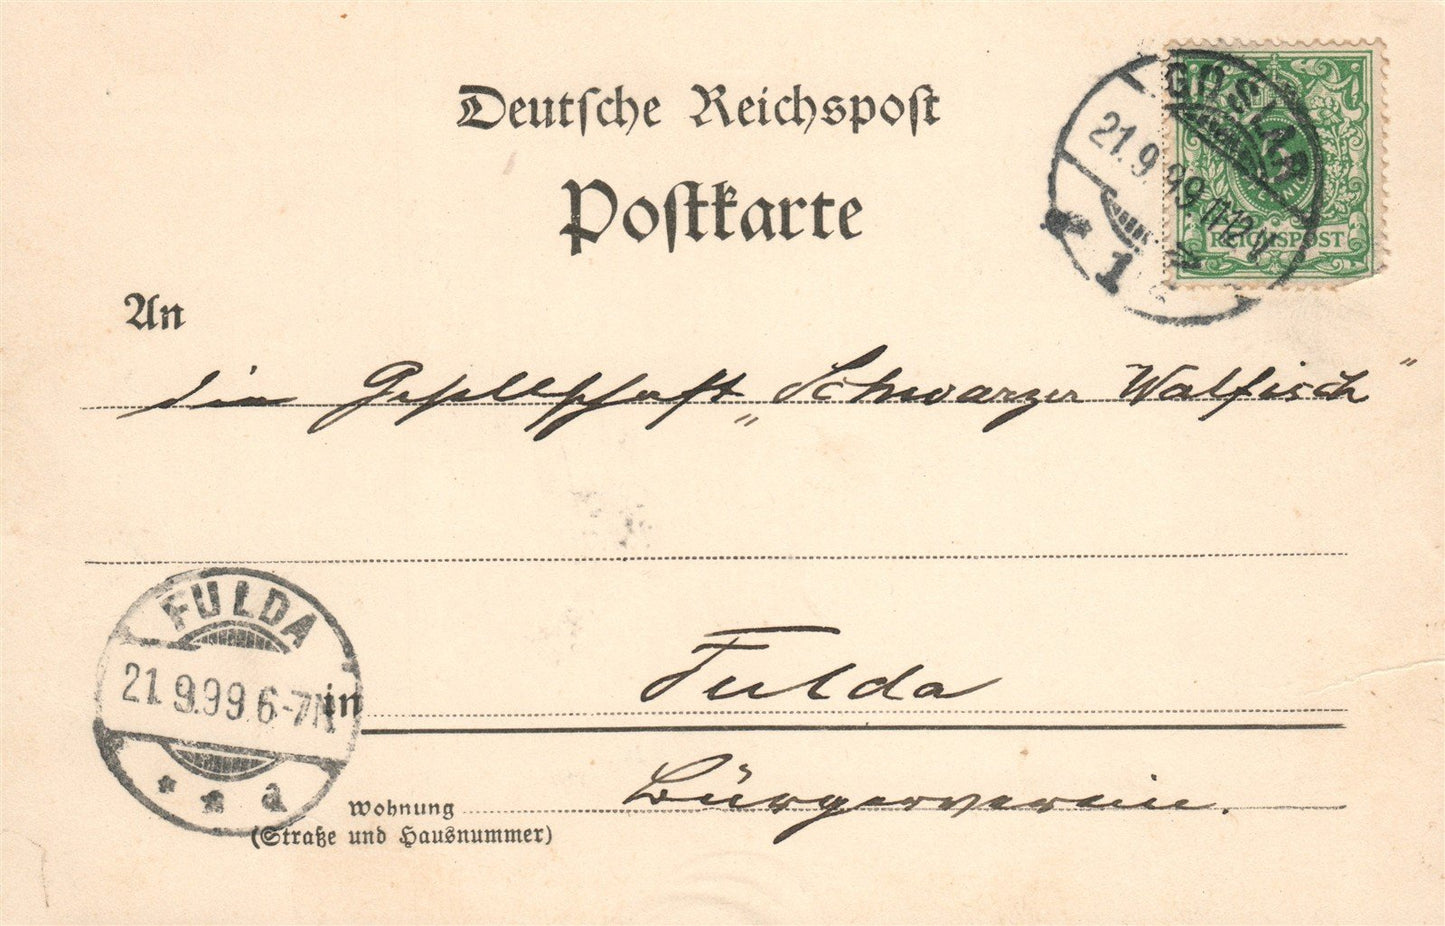 Deutsche Reichspost
Postkarte
GOSLAR
21.9.99 11-12 V
1
REICHSPOST
An
die Gesellschaft „Schwarzer Walfisch”
FULDA
21.9.99 6-7 N
in Fulda
Bürgerverein.
Wohnung
(Straße und Hausnummer)